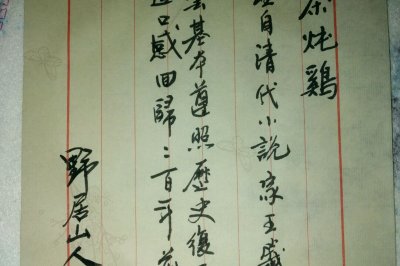 茶炖鷄
自清代小說家王盛
基本遵照歷史復
口感回歸二百年前
野居山人